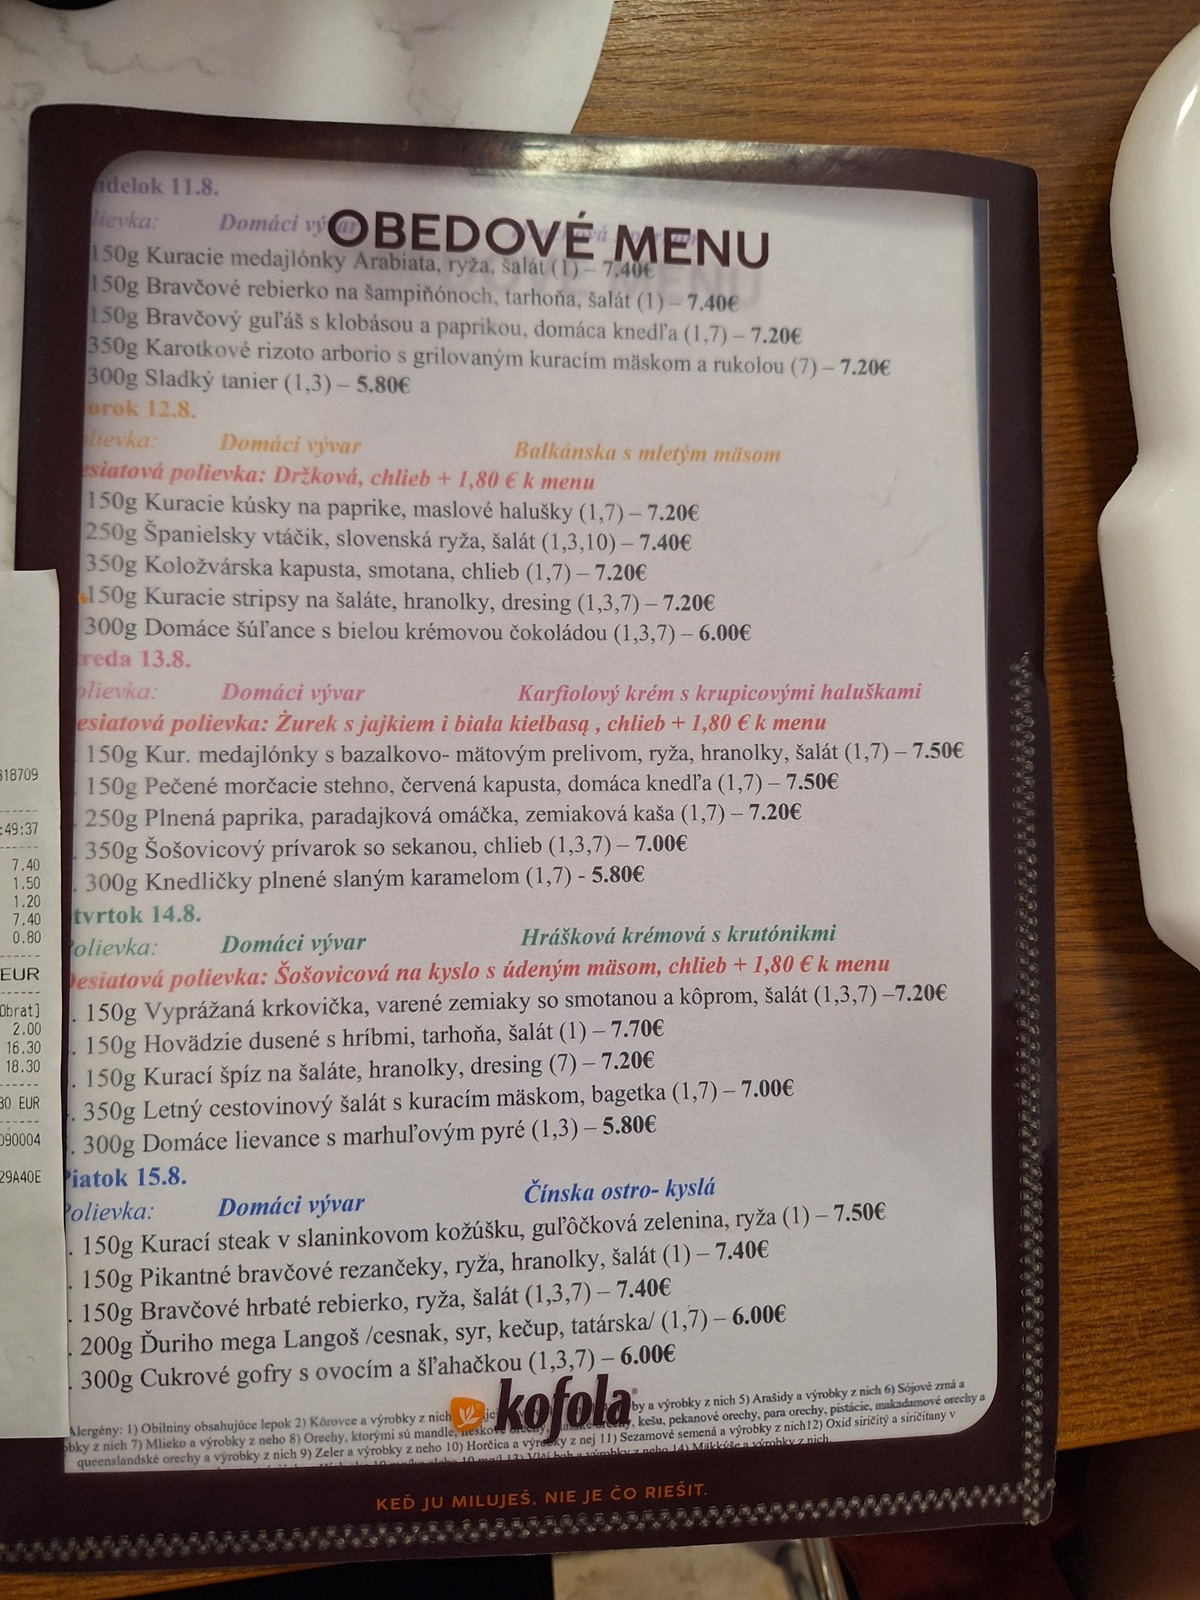 OBEDOVÉ MENU
11.8.
Domáci
150g Kuracie medajlónky Arabiata, ryža, šalát (1) – 7.40€
150g Bravčové rebierko na šampiňónoch, tarhoňa, šalát (1) – 7.40€
150g Bravčový guľáš s klobásou a paprikou, domáca knedľa (1,7) – 7.20€
350g Karotkové rizoto arborio s grilovaným kuracím mäskom a rukolou (7) – 7.20€
300g Sladký tanier (1,3) – 5.80€
orok 12.8.
olievka: Domáci vývar Balkánska s mletým mäsom
esiatová polievka: Držková, chlieb + 1,80 € k menu
150g Kuracie kúsky na paprike, maslové halušky (1,7) – 7.20€
250g Španielsky vtáčik, slovenská ryža, šalát (1,3,10) – 7.40€
350g Koložvárska kapusta, smotana, chlieb (1,7) – 7.20€
150g Kuracie stripsy na šaláte, hranolky, dresing (1,3,7) – 7.20€
300g Domáce šúľance s bielou krémovou čokoládou (1,3,7) – 6.00€
reda 13.8.
olievka: Domáci vývar Karfiolový krém s krupicovými haluškami
esiatová polievka: Żurek s jajkiem i biała kiełbasą , chlieb + 1,80 € k menu
150g Kur. medajlónky s bazalkovo- mätovým prelivom, ryža, hranolky, šalát (1,7) – 7.50€
150g Pečené morčacie stehno, červená kapusta, domáca knedľa (1,7) – 7.50€
. 250g Plnená paprika, paradajková omáčka, zemiaková kaša (1,7) – 7.20€
. 350g Šošovicový prívarok so sekanou, chlieb (1,3,7) – 7.00€
. 300g Knedličky plnené slaným karamelom (1,7) - 5.80€
tvrtok 14.8.
Polievka: Domáci vývar Hrášková krémová s krutónikmi
Desiatová polievka: Šošovicová na kyslo s údeným mäsom, chlieb + 1,80 € k menu
. 150g Vyprážaná krkovička, varené zemiaky so smotanou a kôprom, šalát (1,3,7) –7.20€
. 150g Hovädzie dusené s hríbmi, tarhoňa, šalát (1) – 7.70€
. 150g Kurací špíz na šaláte, hranolky, dresing (7) – 7.20€
. 350g Letný cestovinový šalát s kuracím mäskom, bagetka (1,7) – 7.00€
. 300g Domáce lievance s marhuľovým pyré (1,3) – 5.80€
Piatok 15.8.
Polievka: Domáci vývar Čínska ostro- kyslá
. 150g Kurací steak v slaninkovom kožúšku, guľôčková zelenina, ryža (1) – 7.50€
. 150g Pikantné bravčové rezančeky, ryža, hranolky, šalát (1) – 7.40€
. 150g Bravčové hrbaté rebierko, ryža, šalát (1,3,7) – 7.40€
. 200g Ďuriho mega Langoš /cesnak, syr, kečup, tatárska/ (1,7) – 6.00€
. 300g Cukrové gofry s ovocím a šľahačkou (1,3,7) – 6.00€
kofola
Alergény: 1) Obilniny obsahujúce lepok 2) Kôrovce a výrobky z nich by a výrobky z nich 5) Arašidy a výrobky z nich 6) Sójové zrná a
bky z nich 7) Mlieko a výrobky z neho 8) Orechy, ktorými sú mandle, kešu, pekanové orechy, para orechy, pistácie, makadamové orechy a
queenslandské orechy a výrobky z nich 9) Zeler a výrobky z neho 10) Horčica a výrobky z nej 11) Sezamové semená a výrobky z nich12) Oxid siričitý a siričitany v
KEĎ JU MILUJEŠ, NIE JE ČO RIEŠIŤ.
318709
:49:37
7.40
1.50
1.20
7.40
0.80
EUR
Obrat]
2.00
16.30
18.30
80 EUR
090004
29A40E